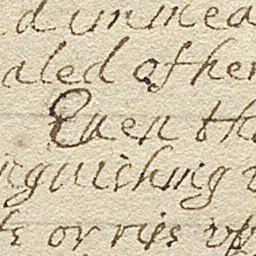 d unmea
aled of her
Euen tha
nguiching
or rise vp